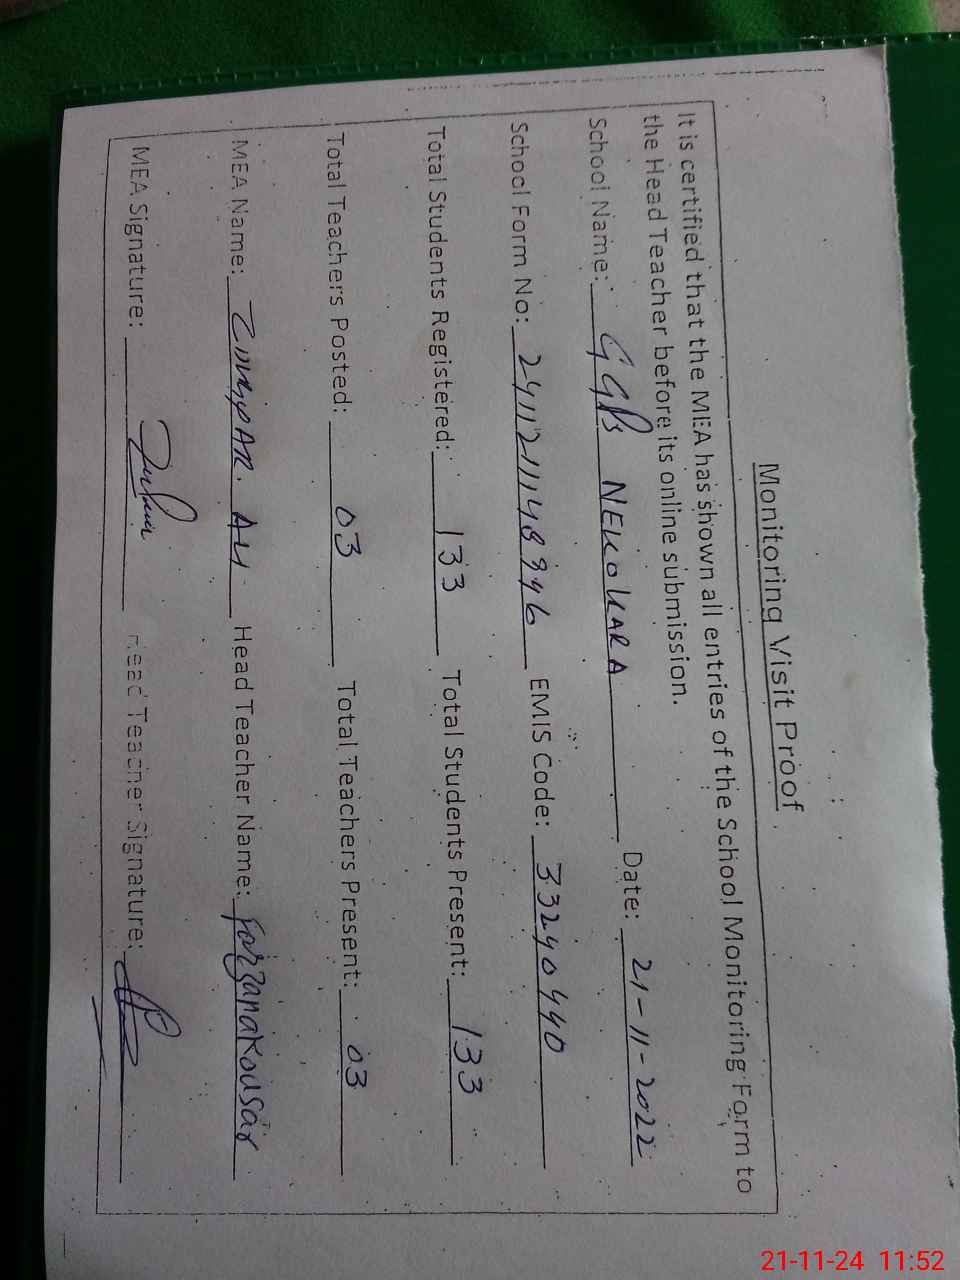 Monitoring Visit Proof
It is certified that the MEA has shown all entries of the School Monitoring Form to
the Head Teacher before its online submission.
School Name: GGPS NEKOKARA Date: 21-11-2022
School Form No: EMIS Code: 33240440
Total Students Registered: 133 Total Students Present: 133
Total Teachers Posted: 03 Total Teachers Present: 03
MEA Name: Head Teacher Name: Farzana Kousar
MEA Signature: Head Teacher Signature:
21-11-24 11:52